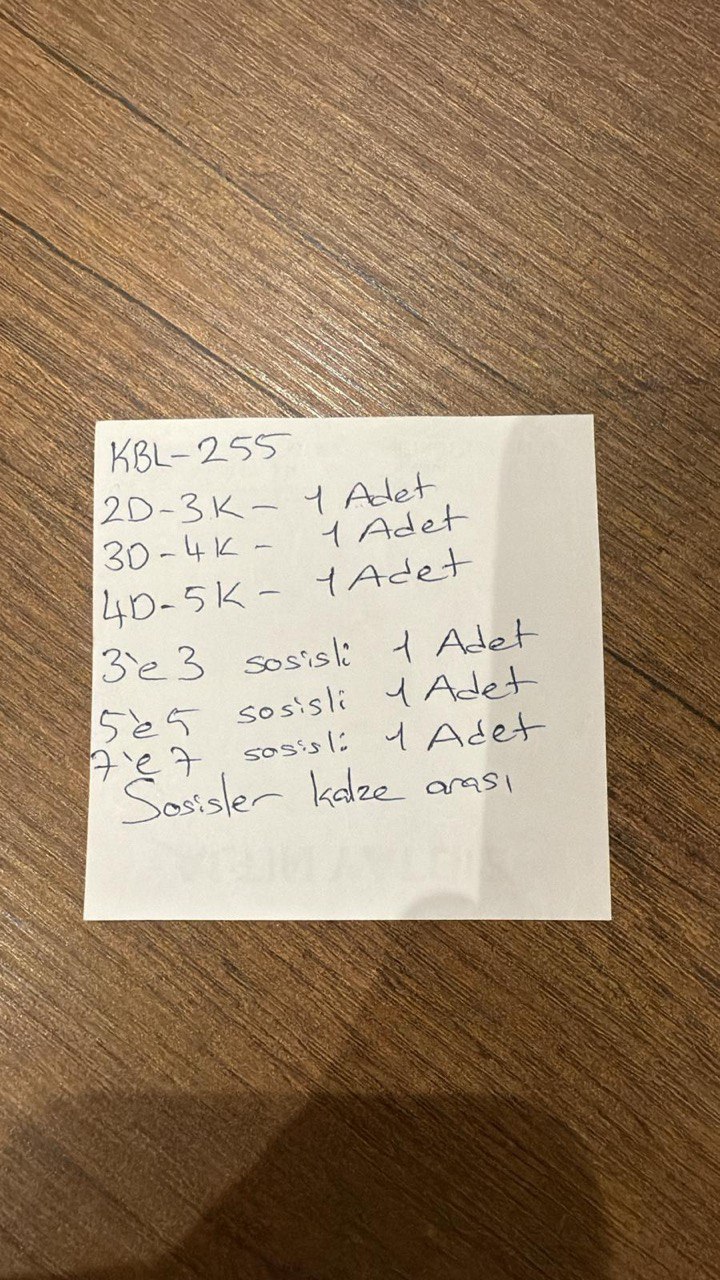 KBL-255
2D-3K- 1 Adet
3D-4K- 1 Adet
4D-5K- 1 Adet
3'e3 sosisli 1 Adet
5'e5 sosisli 1 Adet
7'e7 sosisli 1 Adet
Sosisler kalze arası